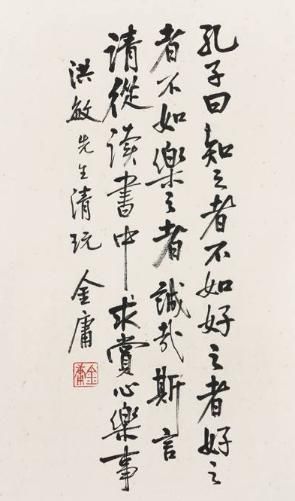 孔子曰知之者不如好之者好之
者不如樂之者誠哉斯言
请從读書中求賞心樂事
洪敏先生清玩 金庸
金庸